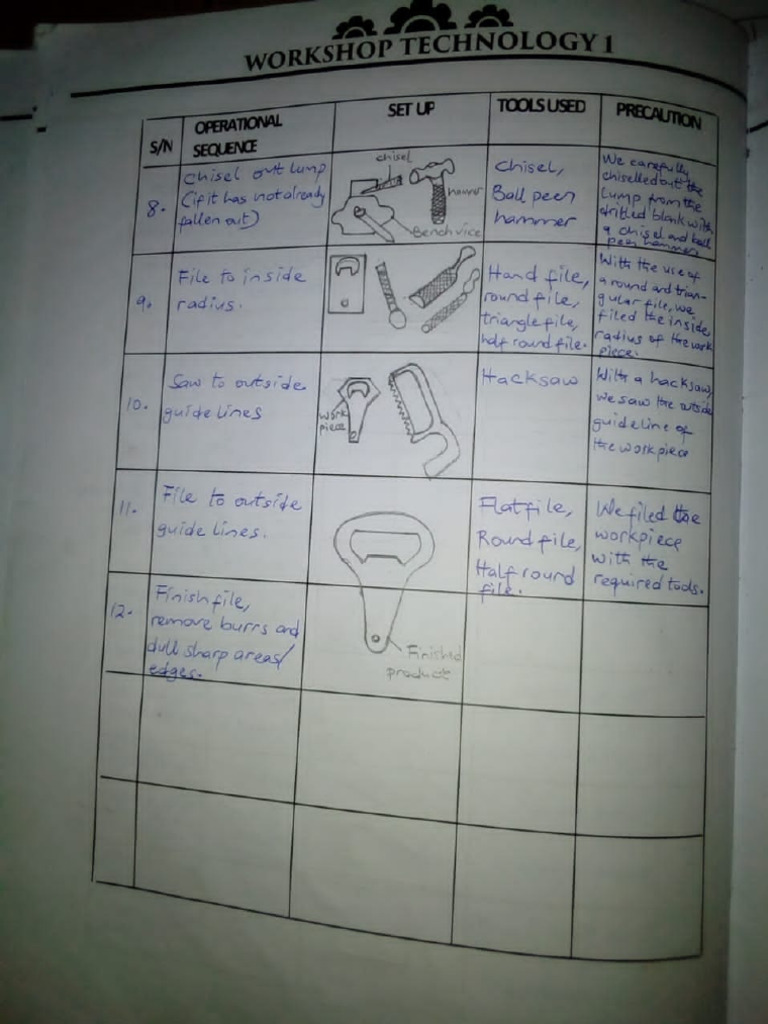 WORKSHOP TECHNOLOGY 1
S/N
OPERATIONAL
SEQUENCE
SET UP
TOOLS USED
PRECAUTION
8.
Chisel out lump
(if it has not already
fallen out)
chisel
hammer
Bench vice
Chisel,
Ball peen
hammer
We carefully
chiselled out the
lump from the
drilled blank with
a chisel and ball
peen hammer
9.
File to inside
radius.
Hand file,
round file,
triangle file,
half round file.
With the use of
a round and trian-
gular file, we
filed the inside
radius of the work
piece.
10.
Saw to outside
guide lines
work
piece
Hacksaw
With a hacksaw,
we saw the outside
guide line of
the workpiece
11.
File to outside
guide lines.
Flat file,
Round file,
Half round
file.
We filed the
workpiece
with the
required tools.
12.
Finish file,
remove burrs and
dull sharp areas/
edges.
Finished
product